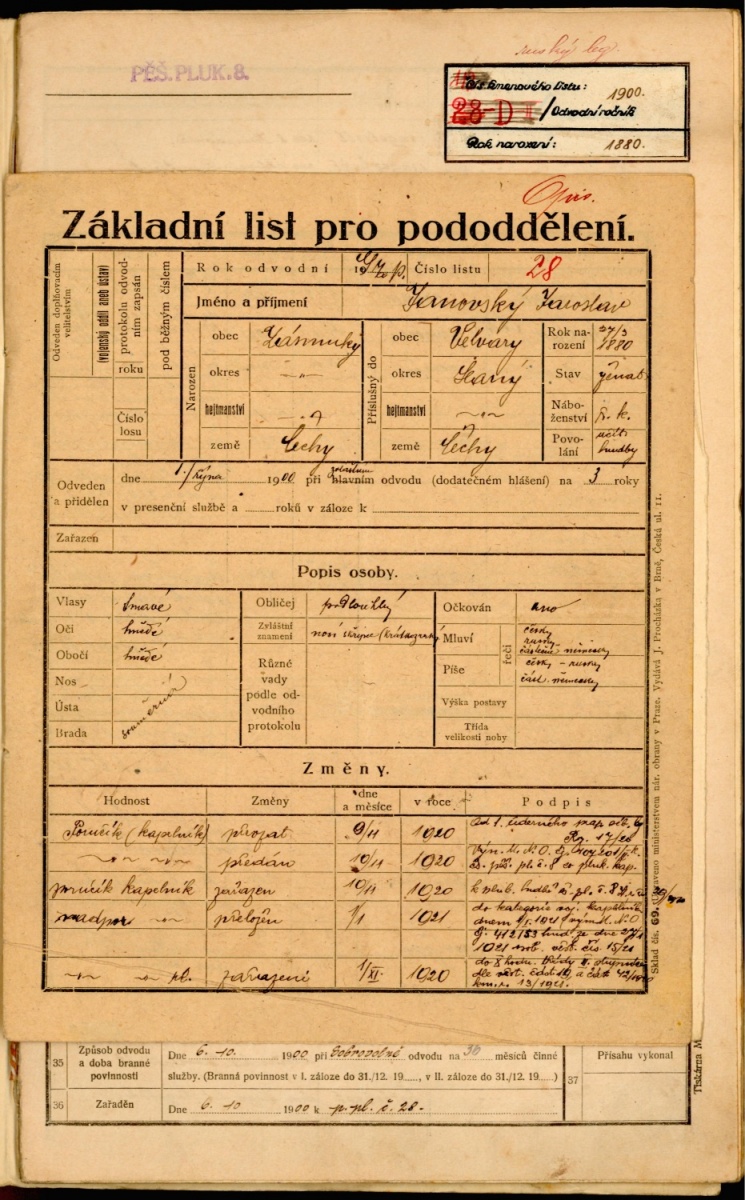 ruský leg.
PĚŠ. PLUK. 8.
Čís. kmenového listu: 1900.
28-D / Odvodní ročník
Rok narození: 1880.
Opis.
Základní list pro pododdělení.
Odveden doplňovacím velitelstvím
(vojenský oddíl aneb ústav)
protokolu odvodním zapsán
pod běžným číslem
roku
Číslo losu
Rok odvodní 19 Číslo listu 28
Jméno a příjmení Janovský Jaroslav
Narozen
obec Zásmuky
okres -„-
hejtmanství -„-
země Čechy
Příslušný do
obec Velvary
okres Slaný
hejtmanství -„-
země Čechy
Rok narození 27/3 1880
Stav ženat
Náboženství ř. k.
Povolání učit. hudby
Odveden a přidělen
dne 1./října 1900 při hlavním odvodu (dodatečném hlášení) na 3 roky
v presenční službě a roků v záloze k
Zařazen
Popis osoby.
Vlasy tmavé
Oči hnědé
Obočí hnědé
Nos
Ústa souměrná
Brada
Obličej podlouhlý
Zvláštní znamení nosí skřipec (krátkozraký)
Různé vady podle odvodního protokolu
Očkován ano
Mluví řečí česky
rusky
částečně německy
Píše česky - rusky
část. německy
Výška postavy
Třída velikosti nohy
Změny.
Hodnost Změny dne a měsíce v roce Podpis
Poručík (kapelník) přejat 9/11 1920 Od 1. úderného prap.
17/20
-„- -„- předán 10/11 1920 č. pěš. pl. č. 8 co pluk. kap.
poručík kapelník zařazen 10/11 1920 k pluk. hudbě č. pl. č. 8
nadpor. -„- přeložen 1/1 1921 do kategorie voj. kapelníků
dnem 1/1. 1921 výn. M. N. O.
č. 412/53 hud. ze dne
1921 věst. čís. 15/21
-„- -„- zařazení 1/XI. 1920 do X. hodn. třídy II. stupně
dle věst. část 19 a část 42/1920
13/1921.
Sklad čís. 69. Upraveno ministerstvem nár. obrany v Praze. Vydává J. Procházka v Brně, Česká ul. 11.
35 Způsob odvodu a doba branné povinnosti
Dne 6. 10. 1900 při dobrovolné odvodu na 36 měsíců činné
služby. (Branná povinnost v I. záloze do 31./12. 19 , v II. záloze do 31./12. 19 )
37 Přísahu vykonal
36 Zařaděn Dne 6. 10 1900 k p. pl. č. 28.
Tiskárna M